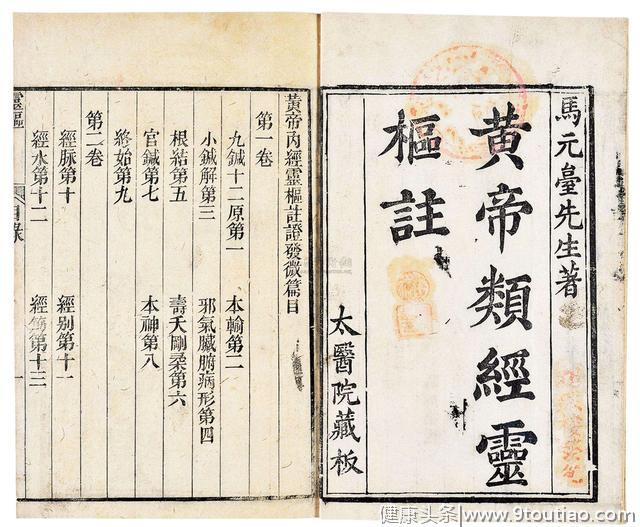 馬元臺先生著
黃帝類經靈
樞註
太醫院藏板
黃帝內經靈樞註證發微篇目
第一卷
九鍼十二原第一　本輸第二
小鍼解第三　邪氣臟腑病形第四
根結第五　壽夭剛柔第六
官鍼第七　本神第八
終始第九
第二卷
經脉第十　經別第十一
經水第十二　經筋第十三
靈樞
目錄
健康头条|www.9toutiao.com